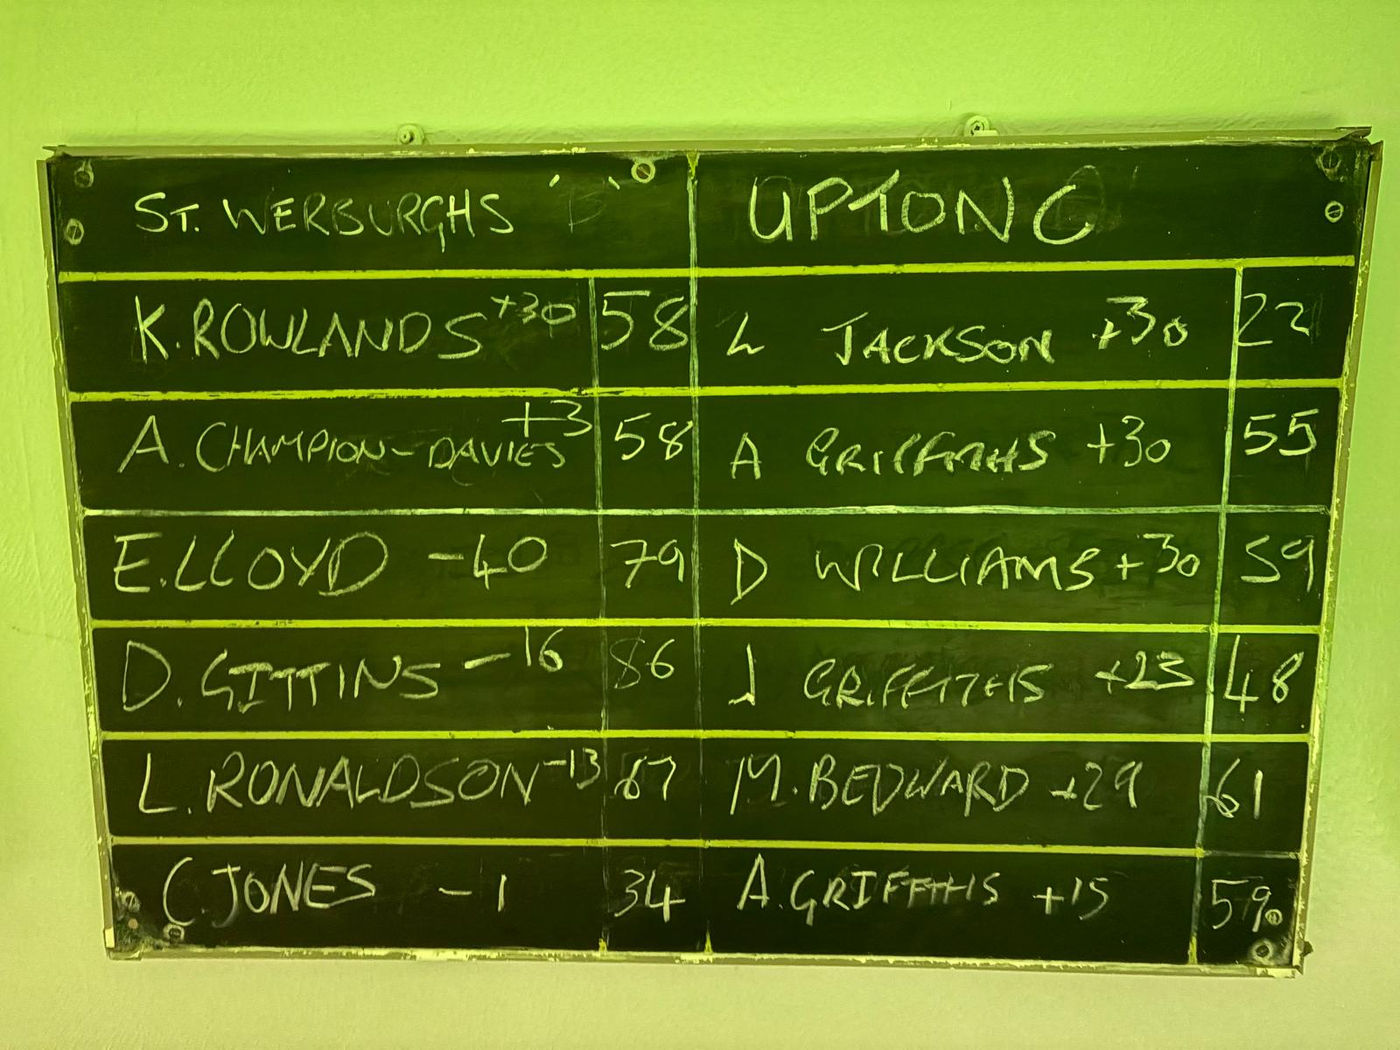 ST. WERBURGHS 'B' UPTON C
K. ROWLANDS +30 58 L JACKSON +30 22
A. CHAMPION-DAVIES +3 58 A GRIFFITHS +30 55
E. LLOYD -40 79 D WILLIAMS +30 59
D. GITTINS -16 86 J GRIFFITHS +23 48
L. RONALDSON -13 87 M. BEDWARD +29 61
C. JONES -1 34 A. GRIFFITHS +15 59